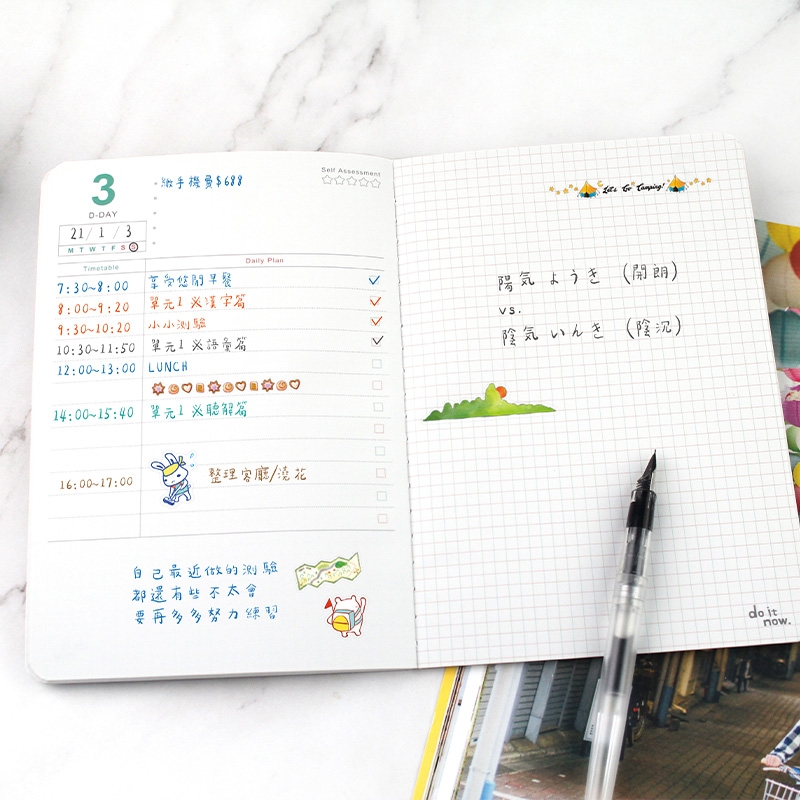 3
D-DAY
21 / 1 / 3
M T W T F S S
繳手機費$688
Self Assessment
Timetable
Daily Plan
7:30~8:00 享受悠閒早餐
8:00~9:20 單元1 必漢字篇
9:30~10:20 小小測驗
10:30~11:50 單元1 必語彙篇
12:00~13:00 LUNCH
14:00~15:40 單元1 必聽解篇
16:00~17:00 整理客廳/澆花
自己最近做的測驗
都還有些不太會
要再多多努力練習
Let's Go Camping!
陽気 ようき (開朗)
vs.
陰気 いんき (陰沉)
do it
now.